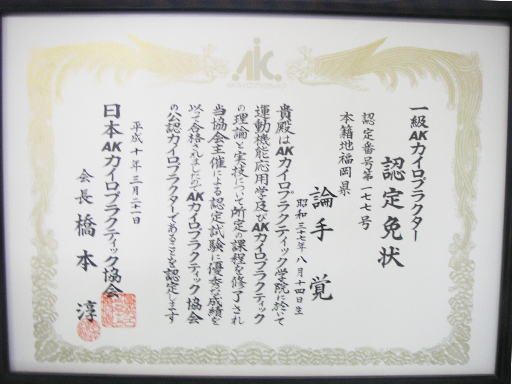 AKC
一級AKカイロプラクター
認定免状
認定番号第一七七号
本籍地福岡県
論手覚
昭和三十七年八月十四日生
貴殿はAKカイロプラクティック学院に於いて
運動機能応用学及びAKカイロプラクティック
の理論と実技について所定の課程を修了され
当協会主催による認定試験に優秀な成績を
以って合格されましたのでAKカイロプラクティック協会
の公認カイロプラクターであることを認定します
平成十年三月二十一日
日本AKカイロプラクティック協会
会長 橋本 淳